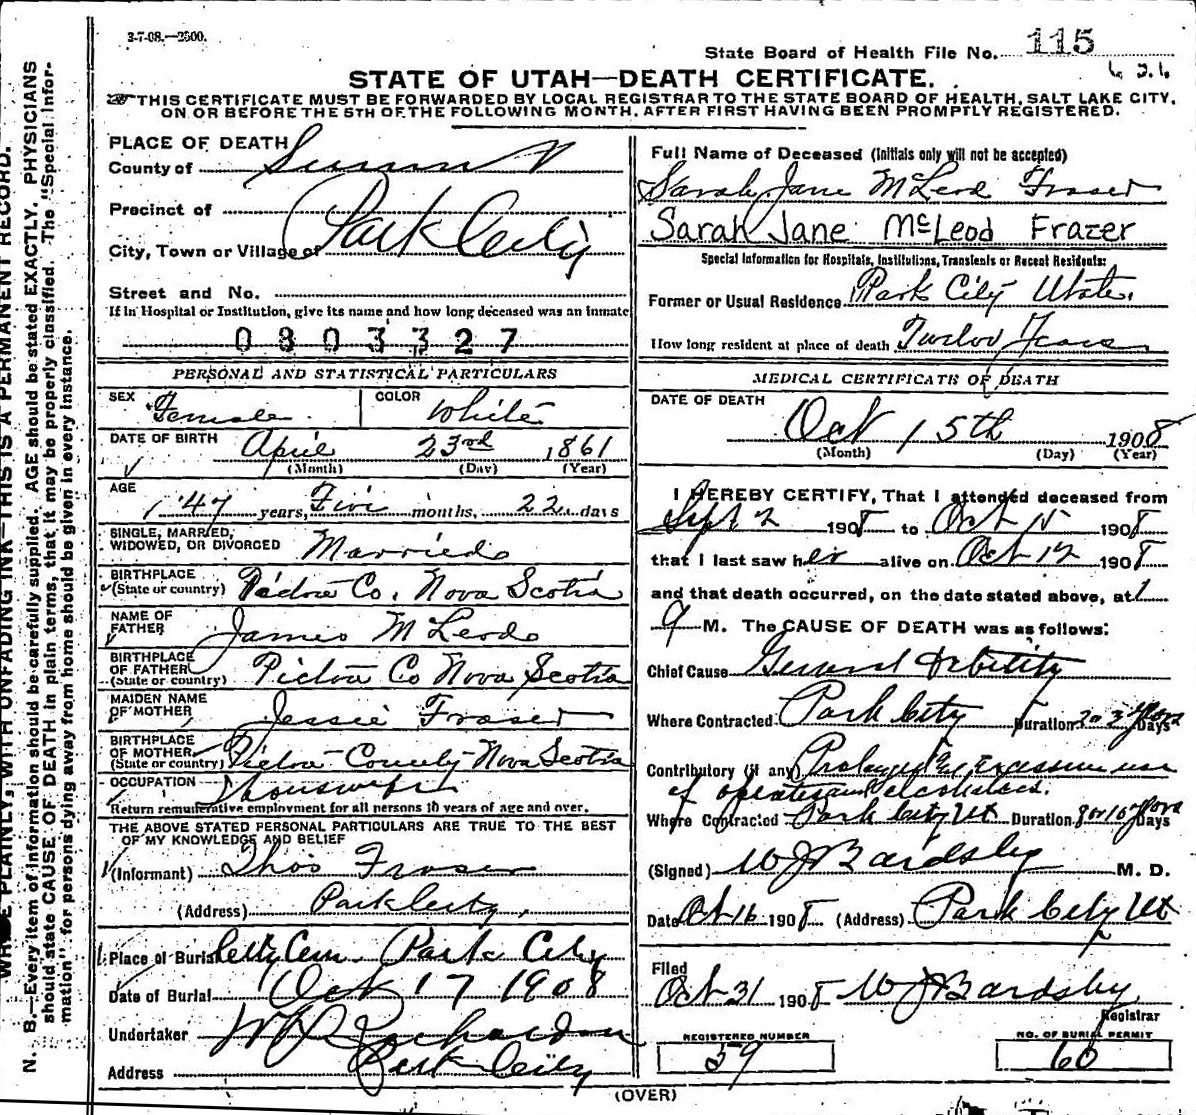 3-7-08.—2500.
State Board of Health File No. 115
STATE OF UTAH—DEATH CERTIFICATE.
THIS CERTIFICATE MUST BE FORWARDED BY LOCAL REGISTRAR TO THE STATE BOARD OF HEALTH, SALT LAKE CITY,
ON OR BEFORE THE 5TH OF THE FOLLOWING MONTH, AFTER FIRST HAVING BEEN PROMPTLY REGISTERED.
WRITE PLAINLY, WITH UNFADING INK—THIS IS A PERMANENT RECORD.
N. B.—Every item of information should be carefully supplied. AGE should be stated EXACTLY. PHYSICIANS
should state CAUSE OF DEATH in plain terms, that it may be properly classified. The "Special Infor-
mation" for persons dying away from home should be given in every instance.
PLACE OF DEATH
County of Summit
Precinct of
City, Town or Village of Park City
Street and No.
If in Hospital or Institution, give its name and how long deceased was an inmate
0803327
PERSONAL AND STATISTICAL PARTICULARS
SEX Female COLOR White
DATE OF BIRTH April 23rd 1861
(Month) (Day) (Year)
AGE 47 years, Five months, 22 days
SINGLE, MARRIED,
WIDOWED, OR DIVORCED Married
BIRTHPLACE
(State or country) Pictou Co. Nova Scotia
NAME OF
FATHER James McLeod
BIRTHPLACE
OF FATHER
(State or country) Pictou Co Nova Scotia
MAIDEN NAME
OF MOTHER Jessie Fraser
BIRTHPLACE
OF MOTHER
(State or country) Pictou County Nova Scotia
OCCUPATION Housewife
Return remunerative employment for all persons 10 years of age and over.
THE ABOVE STATED PERSONAL PARTICULARS ARE TRUE TO THE BEST
OF MY KNOWLEDGE AND BELIEF
(Informant) Thos Fraser
(Address) Park City,
Place of Burial City Cem. Park City
Date of Burial Oct 17 1908
Undertaker
Address Park City
Full Name of Deceased (Initials only will not be accepted)
Sarah Jane McLeod Fraser
Sarah Jane McLeod Frazer
Special Information for Hospitals, Institutions, Transients or Recent Residents:
Former or Usual Residence Park City Utah.
How long resident at place of death Twelve Years
MEDICAL CERTIFICATE OF DEATH
DATE OF DEATH
Oct 15th 1908
(Month) (Day) (Year)
I HEREBY CERTIFY, That I attended deceased from
Sept 2 1908 to Oct 15 1908
that I last saw her alive on Oct 12 1908
and that death occurred, on the date stated above, at 1
M. The CAUSE OF DEATH was as follows:
Chief Cause General Debility
Where Contracted Park City Duration 2 or 3 Years Days
Contributory (if any) Prolonged & Excessive use
of opiates and alcoholics.
Where Contracted Park City Ut Duration 8 or 10 Years Days
(Signed) W J Bardsley M. D.
Date Oct 16 1908 (Address) Park City Ut
Filed
Oct 31 1908 W J Bardsley
Registrar
REGISTERED NUMBER
59
NO. OF BURIAL PERMIT
60
(OVER)